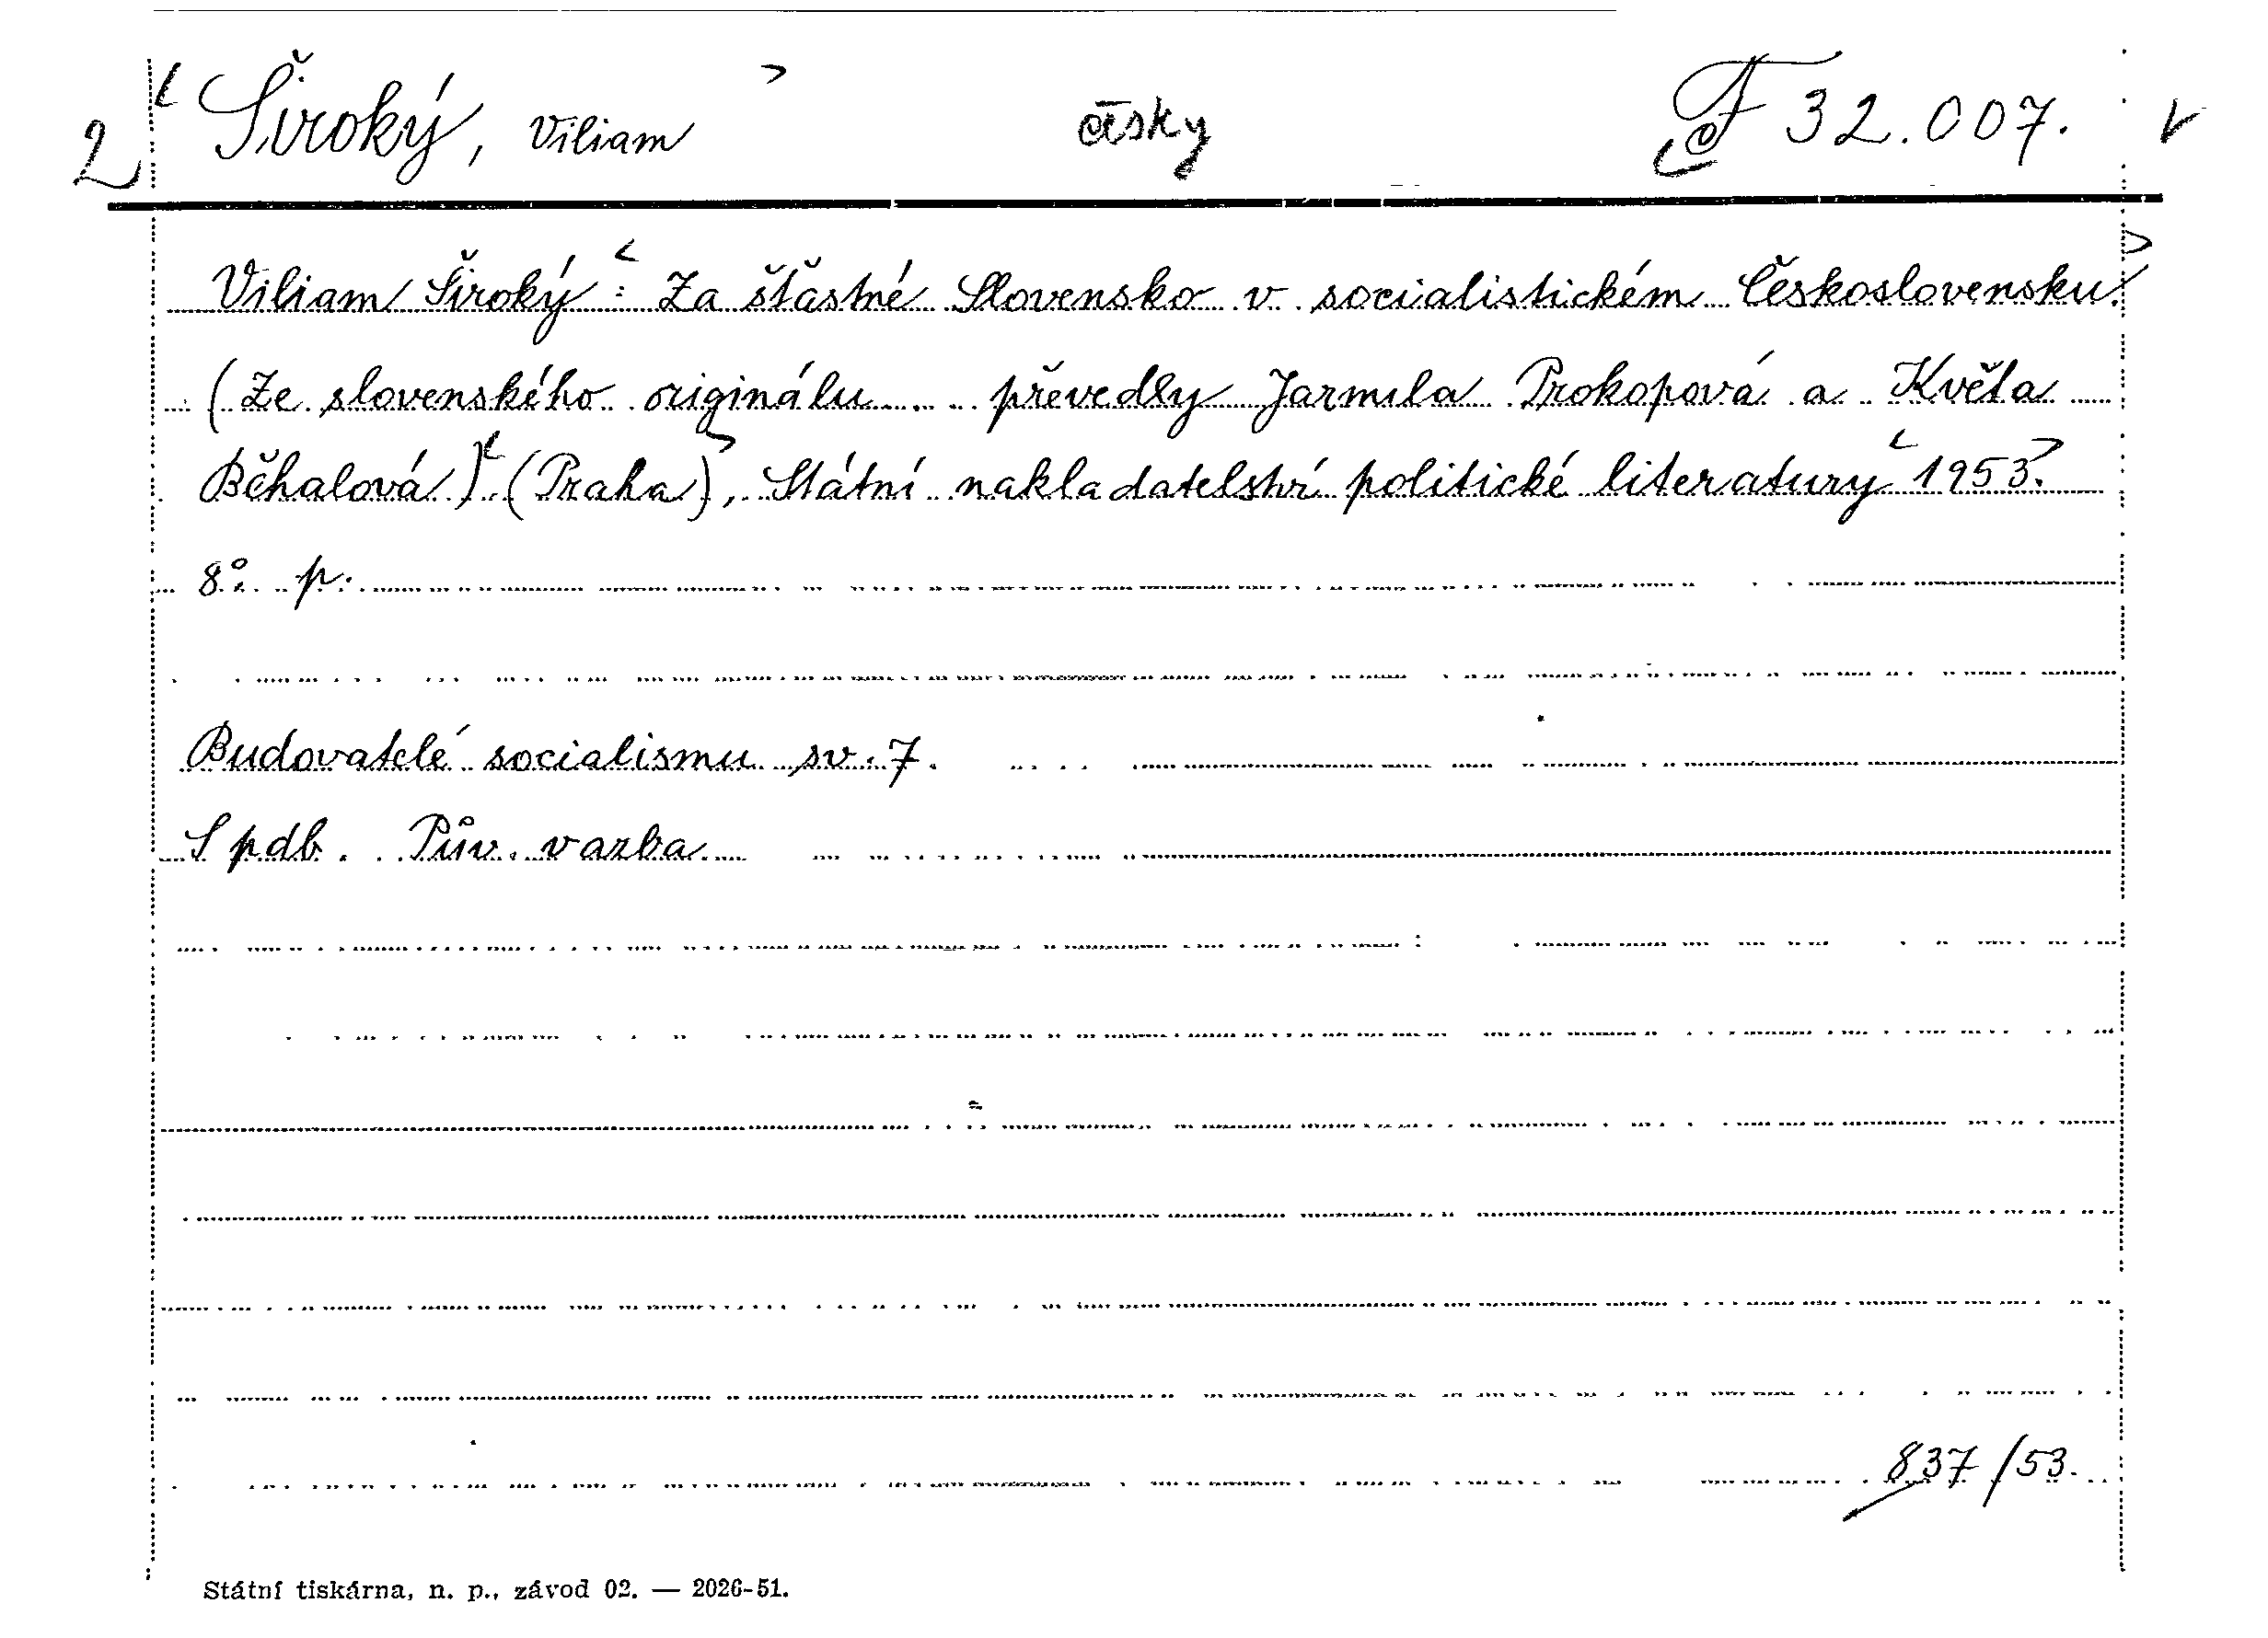 2 Široký, Viliam česky F 32.007. v
Viliam Široký: Za šťastné Slovensko v socialistickém Československu.
(Ze slovenského originálu ... převedly Jarmila Prokopová a Květa
Běhalová) (Praha), Státní nakladatelství politické literatury 1953.
8°. p.
Budovatelé socialismu sv. 7.
S pdb. Pův. vazba
837/53.
Státní tiskárna, n. p., závod 02. — 2026-51.